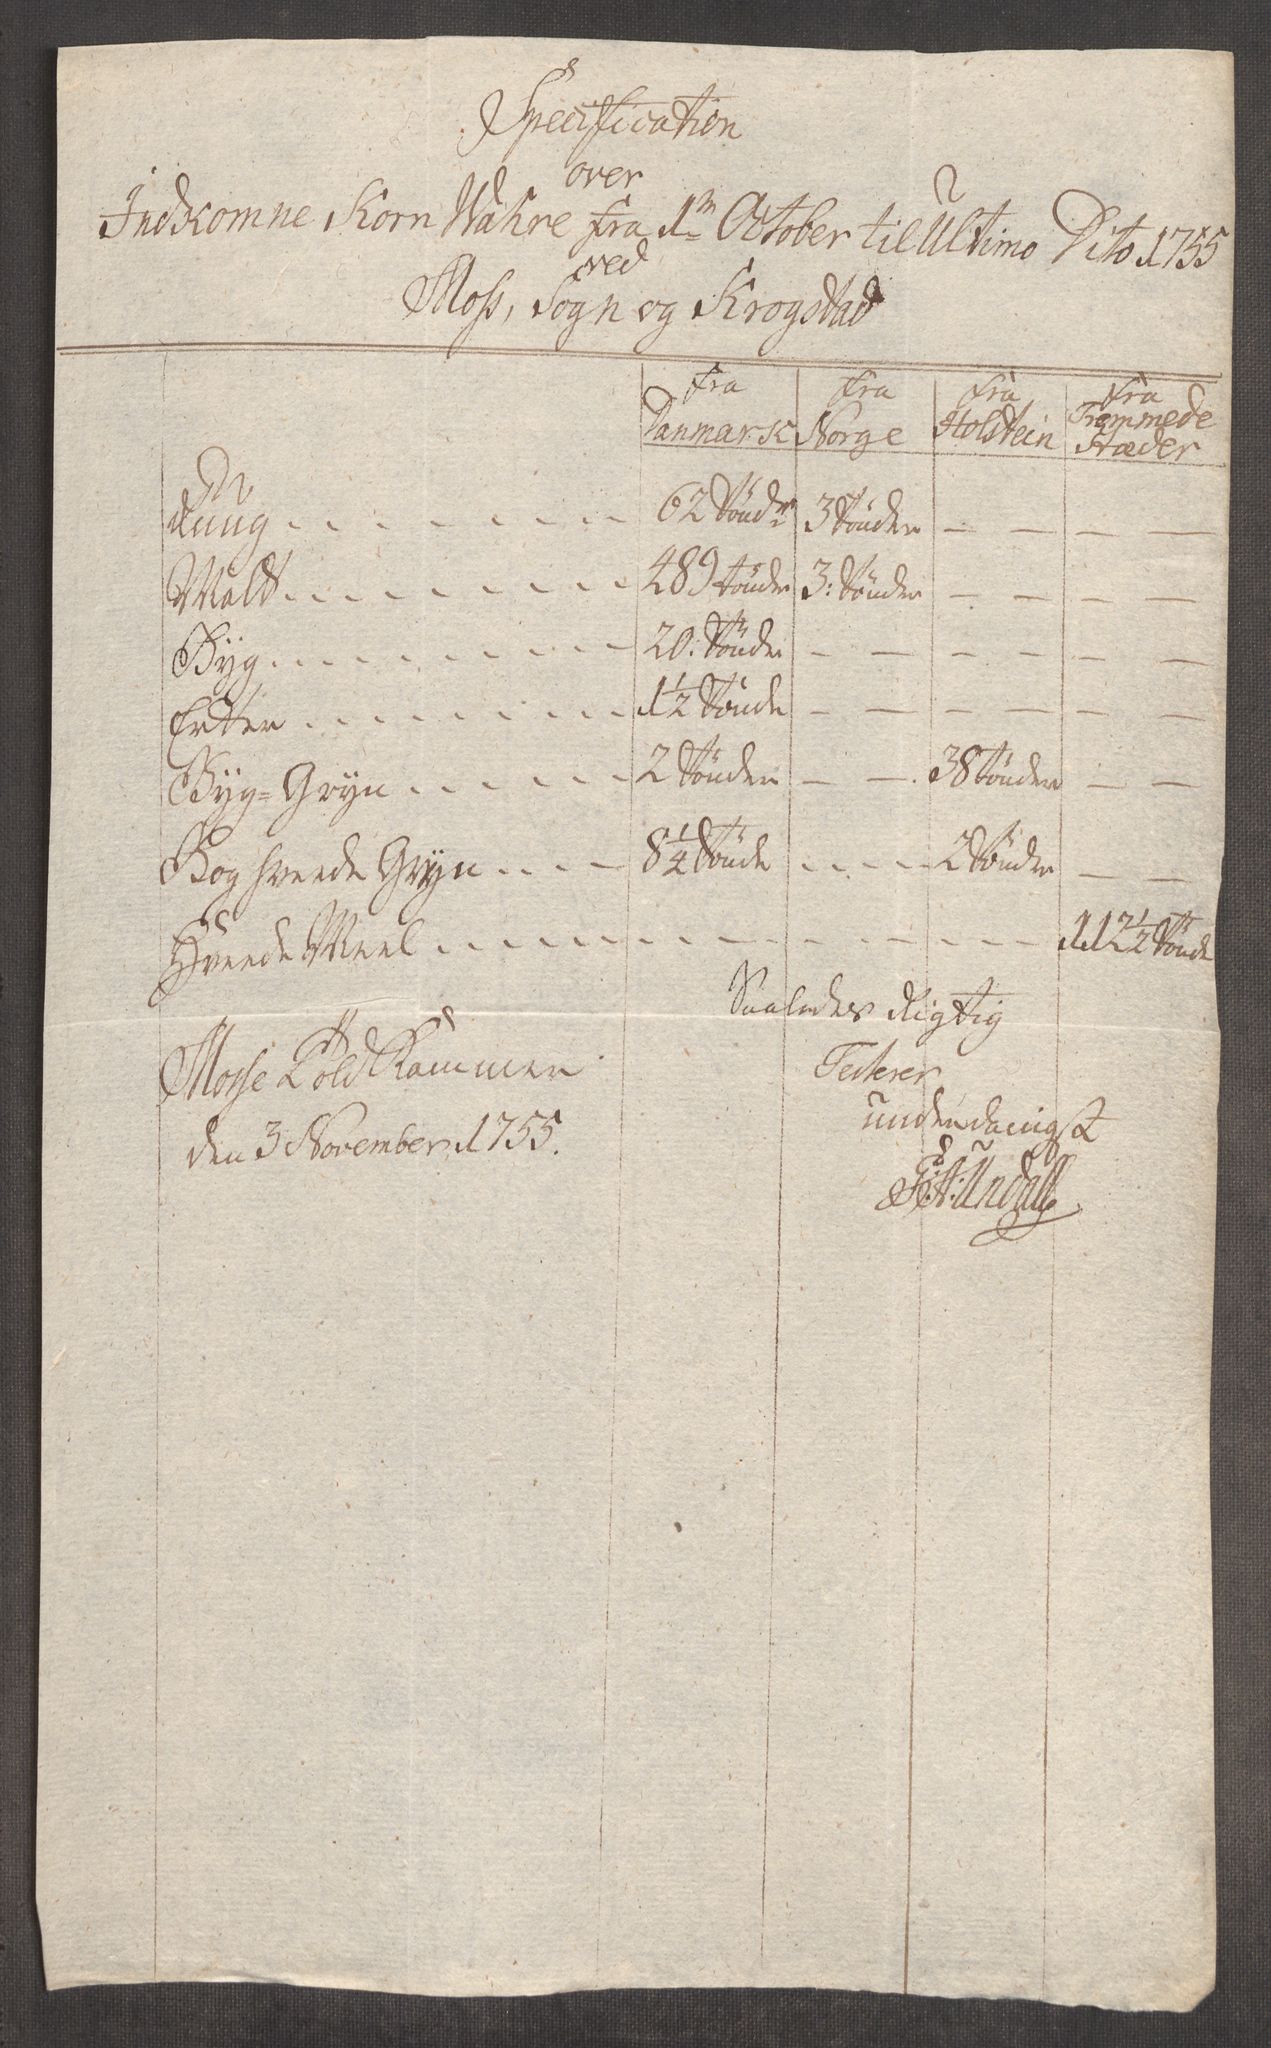 Specification
over
Indkomne Korn Wahre fra 1m October til Ultimo Dito 1755
ved
Moss, Sogn og Krogstad
fra Danmark fra Norge fra Holstein fra Fremmede Stæder
Rüug 62 Tönd 3 Tönder — — — —
Malt 489 tönder 3: Tönder — — — —
Byg 20. Tönder — — — — — —
Erter 1½ Tönde — — — — — —
Byg=Gryn 2 Tönder — — 38 Tönder — —
Boghveede Gryn 8¼ Tönde 2 Tönder — —
Hveede Meel 112½ Tönde
Saaledes Rigtig
Mosse Told Kammer
Testerer
den 3 November 1755.
underdanigst
Undall